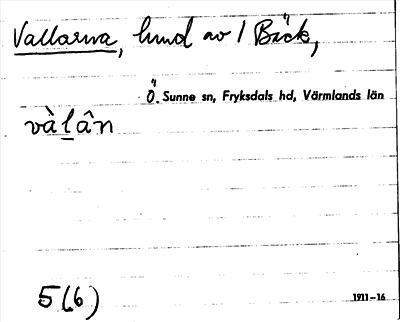 Vallarna, hmd av 1 Bäck,
Ö. Sunne sn, Fryksdals hd, Värmlands län
vàlân
5(6)
1911–16